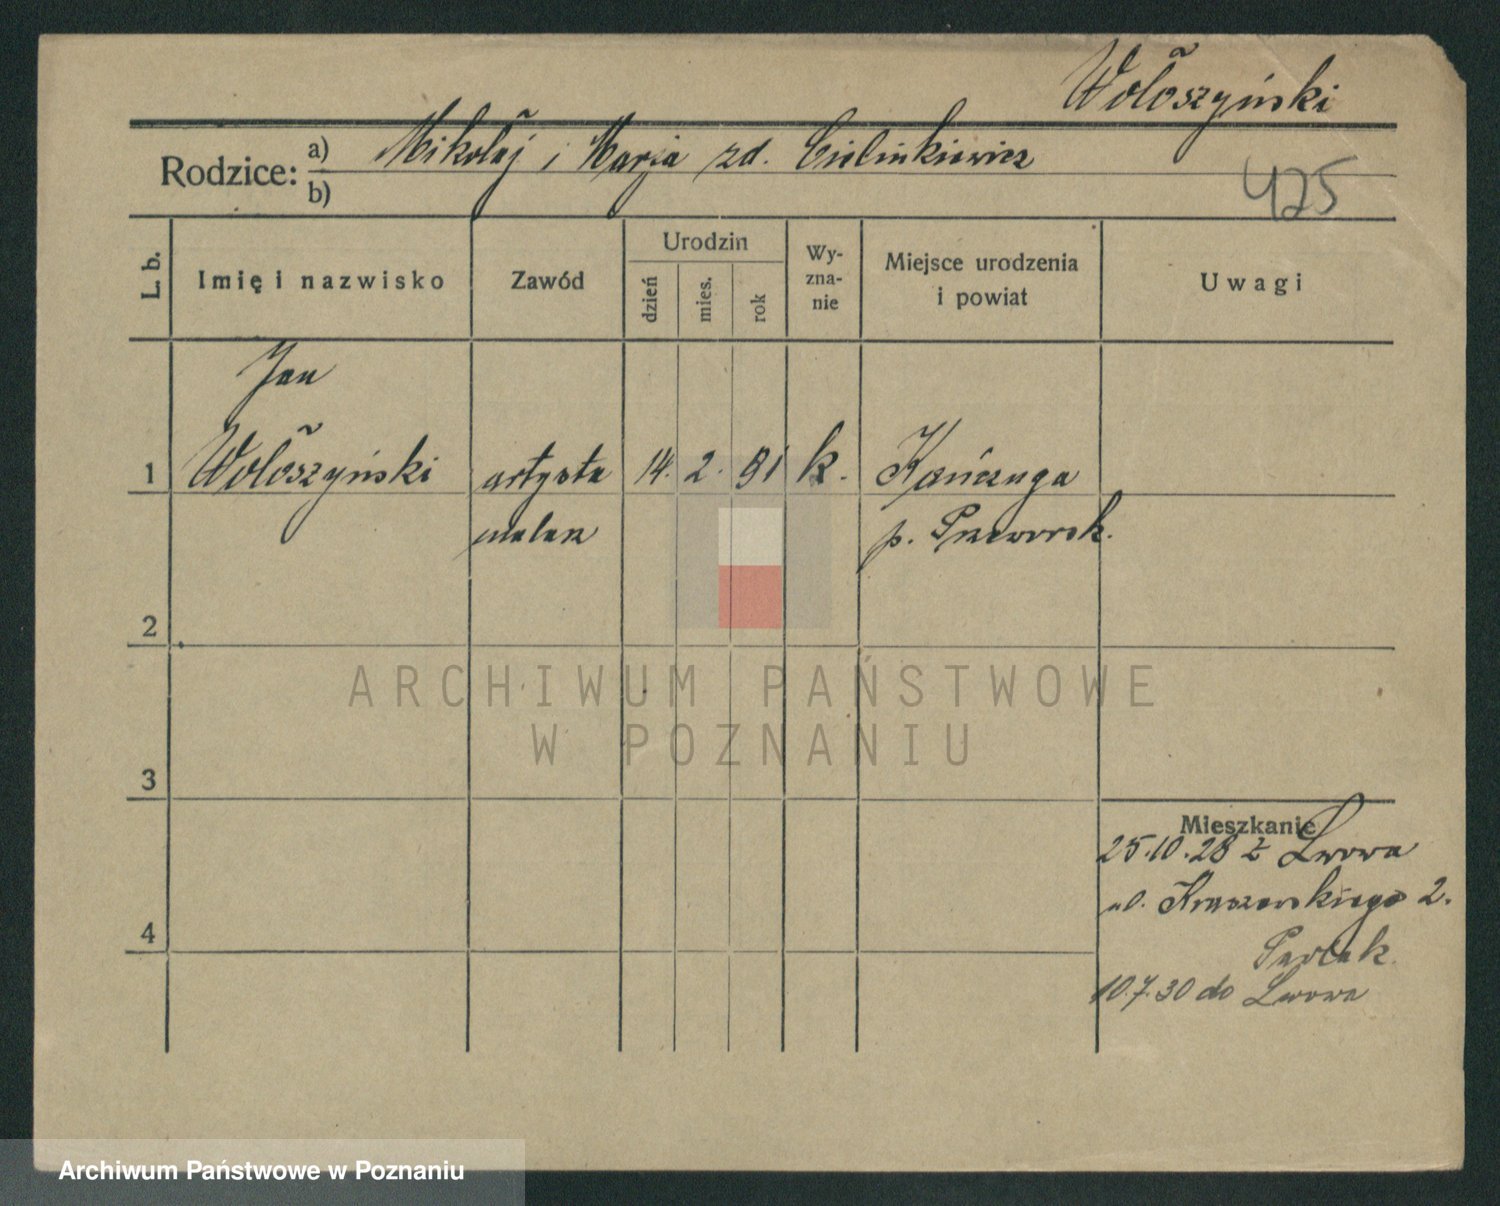 Wołoszyński
Rodzice: a) Mikołaj i Marja zd. Cielinkiewicz
b)
425
L. b.
Imię i nazwisko
Zawód
Urodzin
dzień
mies.
rok
Wy-
zna-
nie
Miejsce urodzenia
i powiat
Uwagi
Jan
1 Wołoszyński artysta 14. 2. 91 k. Kańczuga
malarz p. Przeworsk.
2
ARCHIWUM PAŃSTWOWE
W POZNANIU
3
Mieszkanie
25.10.28 z Lwowa
ul. Kraszewskiego 2.
4
10.7.30 do Lwowa
Archiwum Państwowe w Poznaniu